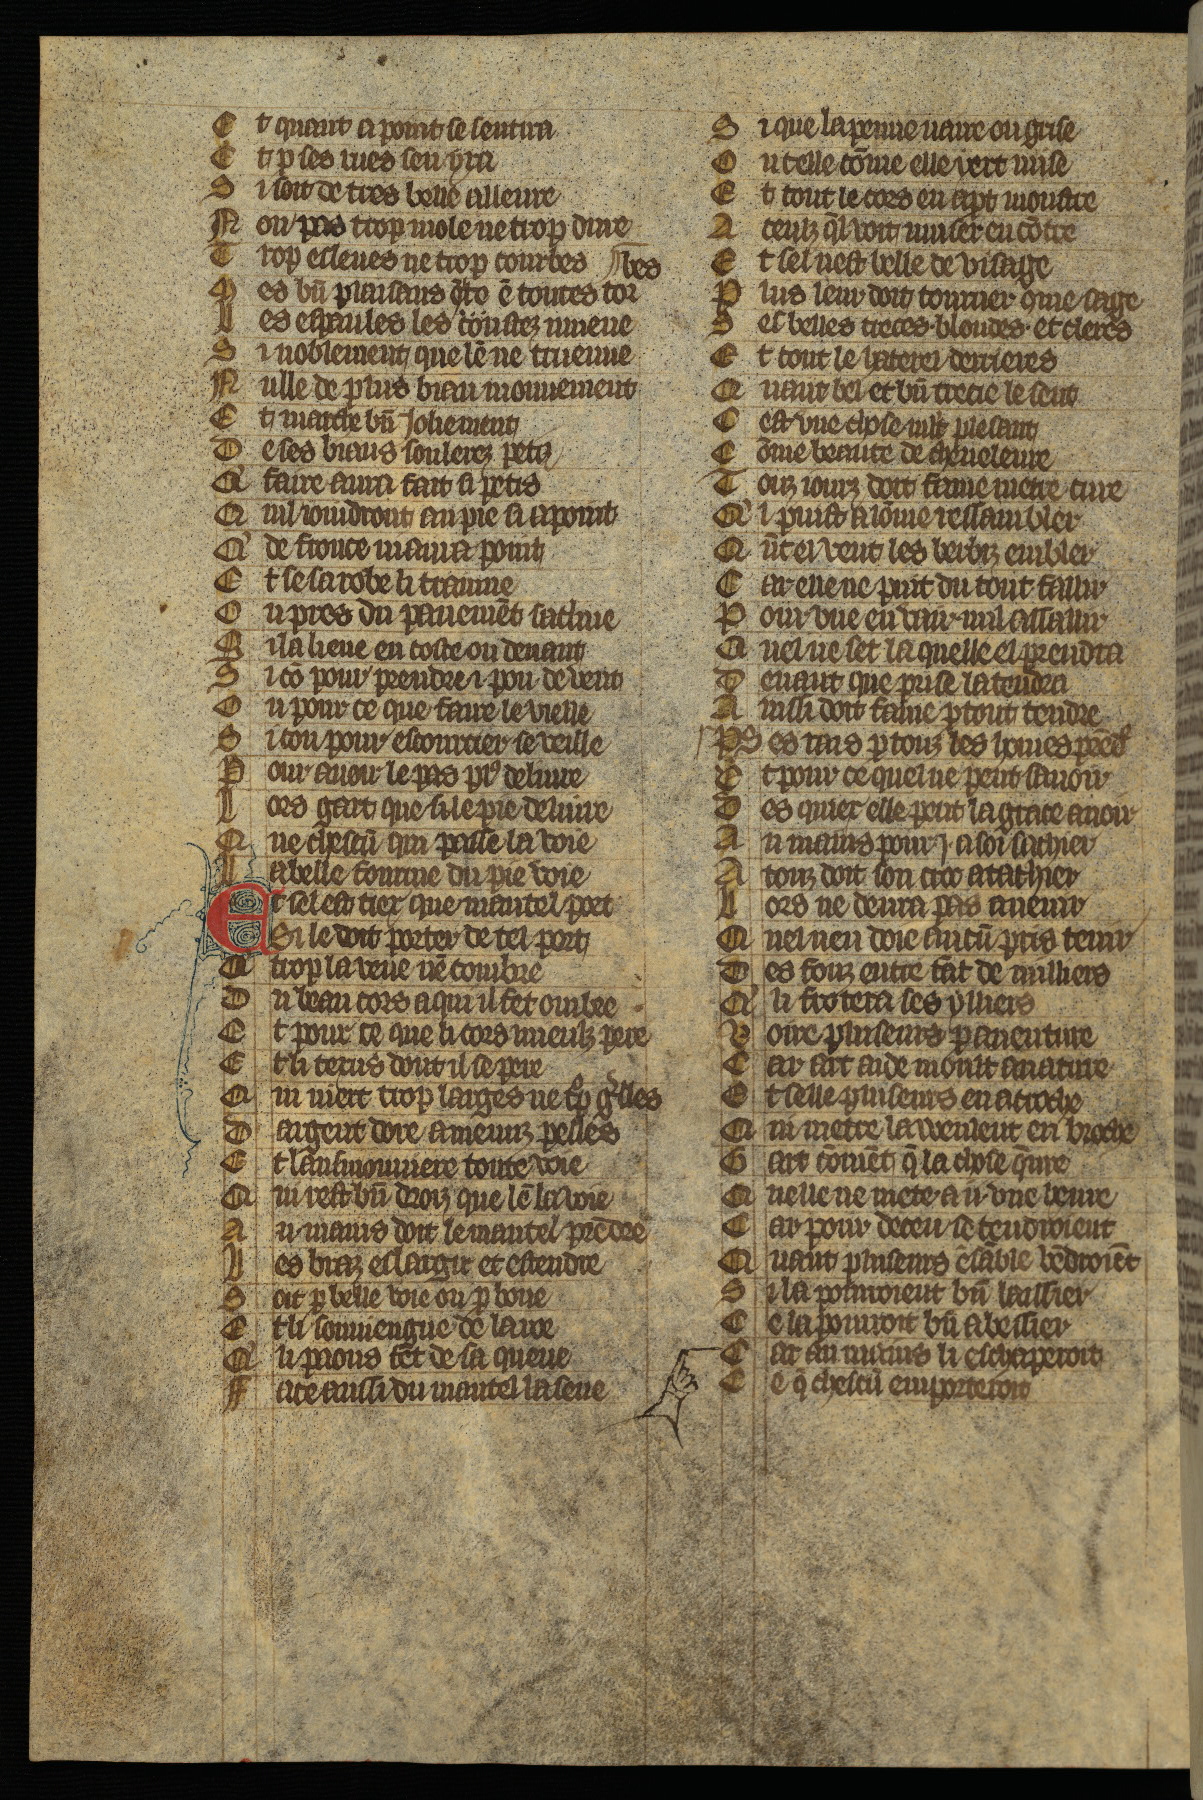 Et quant a point se sentira
Et p ses rues sen yra
Si soit de tres belle alleure
Non pas trop mole ne trop dure
Trop eslevee ne trop courbes
Mes bn̄ plaisans q̄to ē toutes tor
bes
Les espaules les coustez mueue
Si noblement que lē ne trueuue
Nulle de plus biau mouuement
Et marche bn̄ Joliement
De ses biaus soulerez petiz
Q faire aura fait si petis
Qui ioindront au pie si a point
Q de fronce ni aura point
Et se sa robe li traine
Ou pres du pauemēt sacline
Si la lieue en coste ou deuant
Si cō pour prendre i pou de vent
Ou pour ce que faire le vielle
Si con pour escourcier se veille
Pour auoir le pas pl9 deliure
Lors gart que si le pie deliure
Que chescū qui passe la voie
La belle fourme du pie voie
Et sel est tiex que mantel port
Si le doit porter de tel port
Q trop la veue nē combre
Du beau cors a qui il fet ombre
Et pour ce que li cors mieulz pere
Et li texus dont il se pere
Qui niert trop larges ne trop grelles
Dargent dore a menuz pelles
Et laumouniere toute voie
Qui rest bn̄ droiz que lē la voie
A ii mains doit le mantel prēdre
Les braz eslargir et estendre
Soit p belle voie ou p boue
Et li souuengne de la roe
Q li paons fēt de sa queue
Face aussi du mantel la seue
Si que la penne uaire ou grise
Ou telle cōme elle yert mise
Et tout le cors en apt moustre
A ceulz q̄l voit muser en cōtre
Et sel nest belle de visage
Plus leur doit tourner cme sage
Ses belles treces blondes et cleres
Et tout le haterel derrieres
Quant bel et bn̄ trecie le sent
Cest vne chose mlt plesant
Cōme beaute de cheueleure
Touz iourz doit fame metre cure
Q i puist a lōme ressambler
Qūt el veut les berbiz embler
Car elle ne puit du tout fallir
Pour vne en vait mil assallir
Quel ne set la quelle el prendra
Deuant que prise la tendra
Aussi doit fame p tout tendre
Ses rais p touz les hōmes prēdre
Et pour ce quel ne peut sauoir
Des quiex elle peut la grace auoir
Au mains pour i a soi sachier
A touz doit son croc atachier
Lors ne deura pas auenir
Quel nen doie aucū pris tenir
Des fouz entre tāt de milliers
Q li frotera ses ylliers
Voire pluseurs p auenture
Car art aide moult a nature
Et selle pluseurs en acroche
Qui metre la veuleut en broche
Gart comēt q la chose q̄ure
Quelle ne mete a ii vne heure
Car pour deceu se tendroient
Quant pluseurs ēsāble vēdroiēt
Si la pourroient bn̄ laissier
Ce la pourroit bn̄ abessier
Car au mains li eschaperoit
Ce q chescū emporteroit